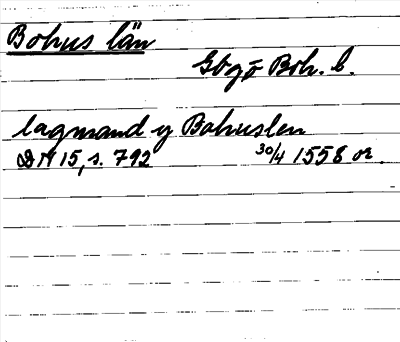 Bohus län
Gbgō Boh. l.
lagmand y Bahuslen
DN 15, s. 792 30/4 1558 or.